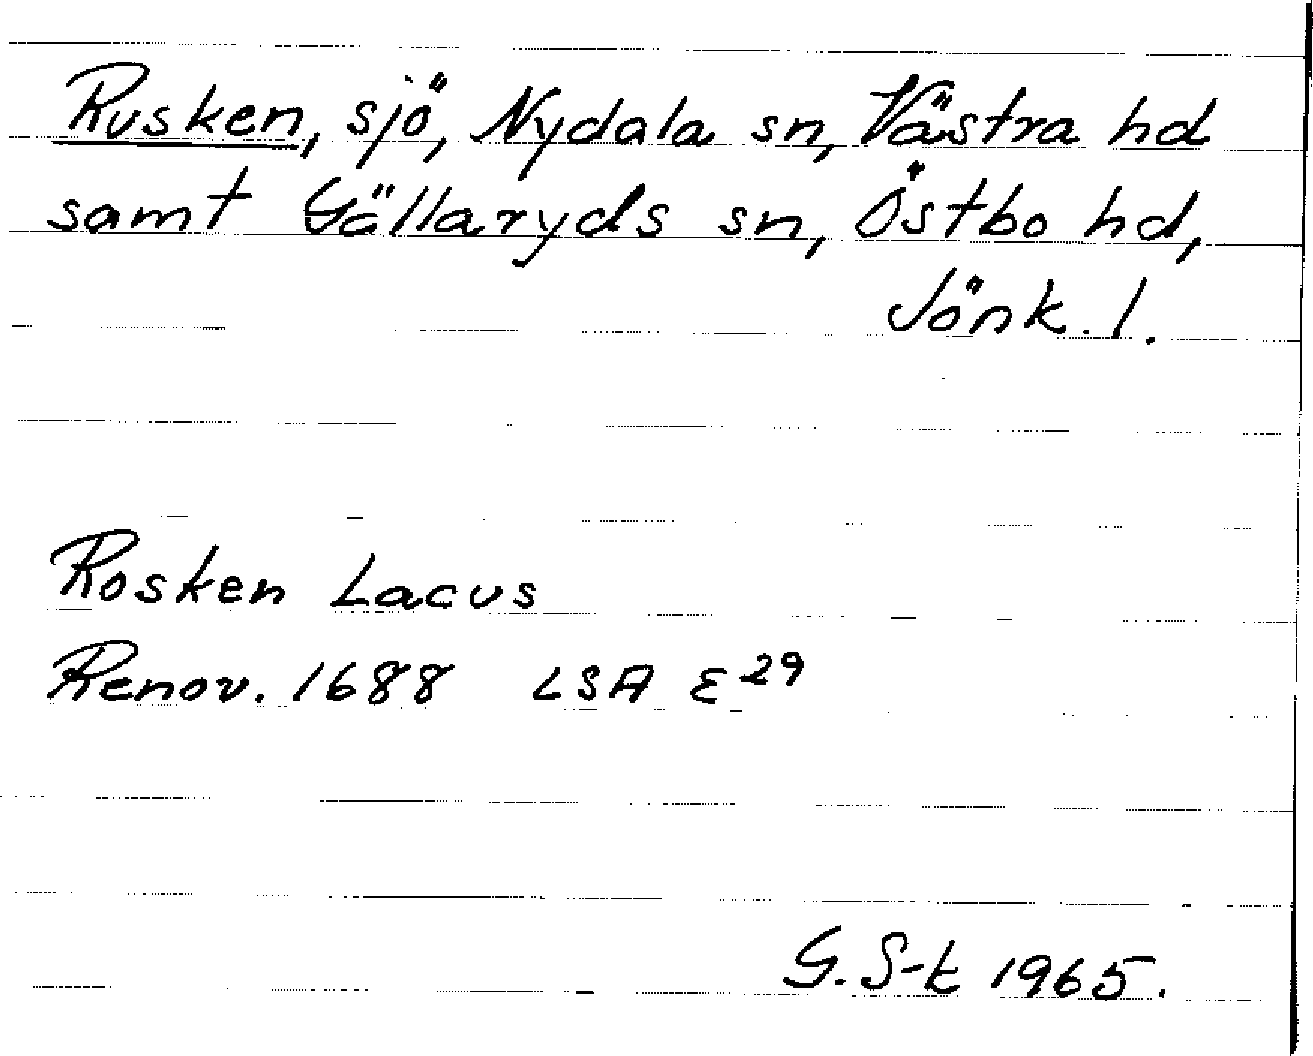 Rusken, sjö, Nydala sn, Västra hd
samt Gällaryds sn, Östbo hd,
Jönk. l.
Rosken Lacus
Renov. 1688 LSA E 29
G. S-k 1965.